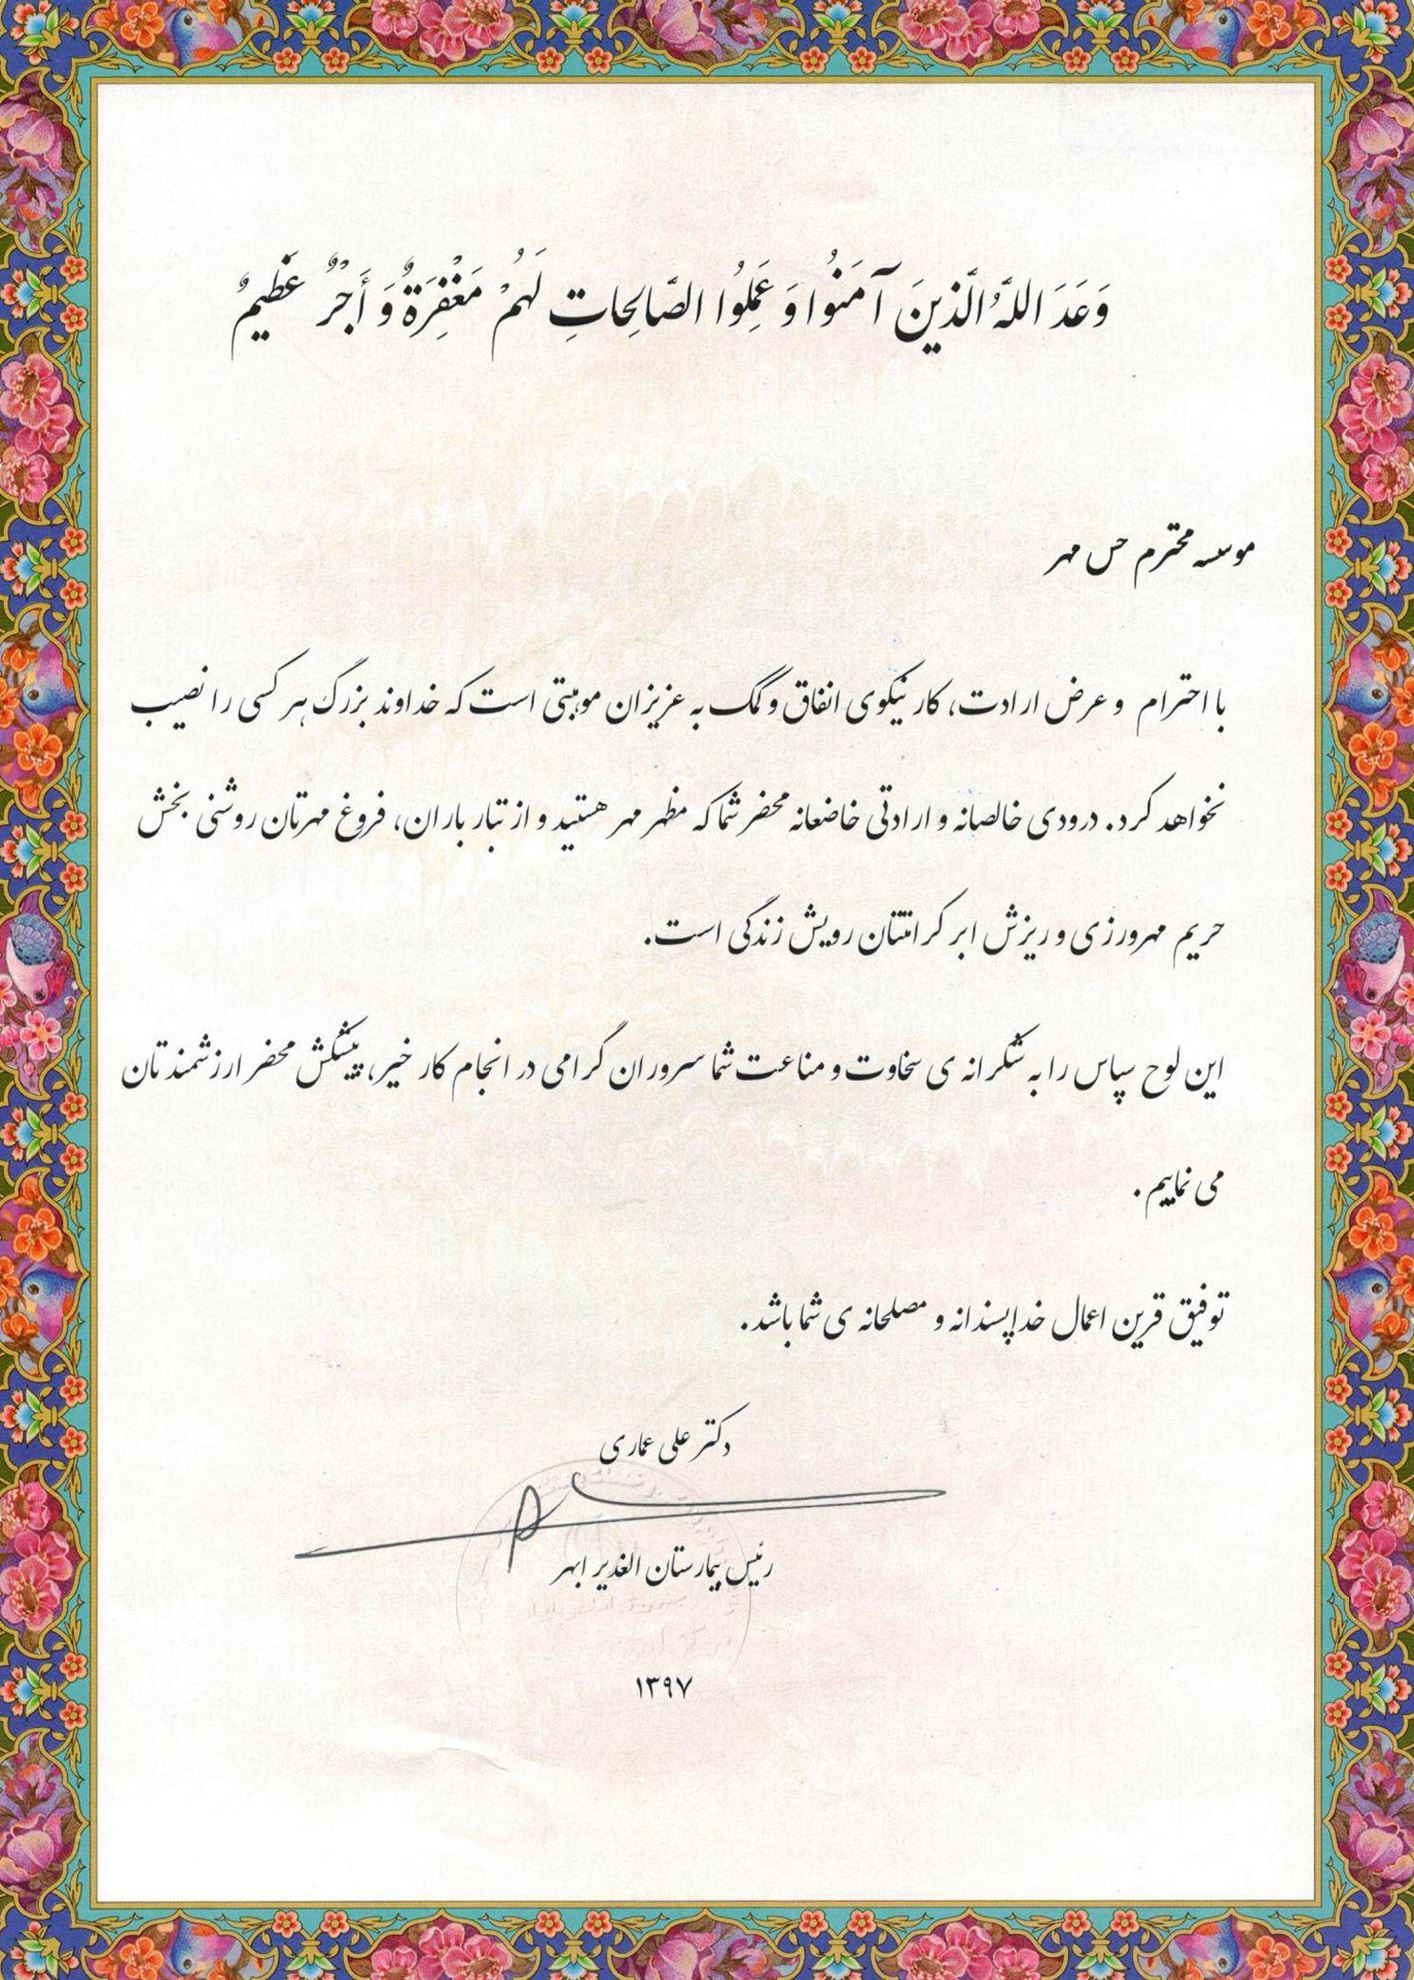 وَعَدَ اللَّهُ الَّذِينَ آمَنُوا وَ عَمِلُوا الصَّالِحَاتِ لَهُمْ مَغْفِرَةٌ وَ أَجْرٌ عَظِيمٌ
موسسه محترم حس مهر
با احترام و عرض ارادت، کار نیکوی انفاق و کمک به عزیزان موهبتی است که خداوند بزرگ هر کسی را نصیب
نخواهد کرد. درودی خالصانه و ارادتی خاضعانه محضر شما که مظهر مهر هستید و از تبار باران، فروغ مهرتان روشنی بخش
حریم مهرورزی و ریزش ابر کرامتتان رویش زندگی است.
این لوح سپاس را به شکرانه ی سخاوت و مناعت شما سروران گرامی در انجام کار خیر، پیشکش محضر ارزشمندتان
می نماییم.
توفیق قرین اعمال خداپسندانه و مصلحانه ی شما باشد.
دکتر علی عماری
رئیس بیمارستان الغدیر ابهر
۱۳۹۷